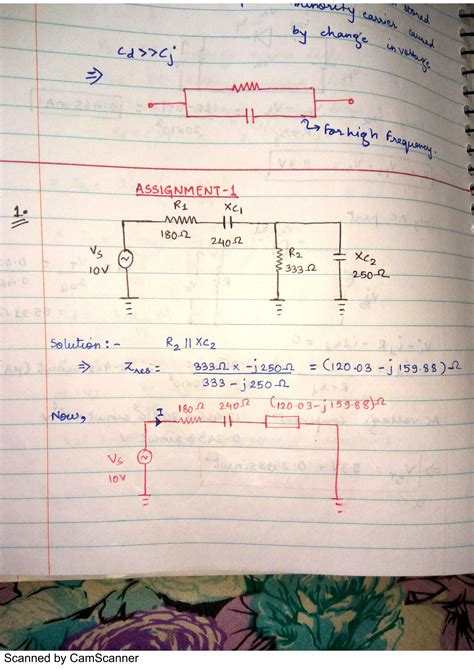 stored
minority carrier caused
by change in voltage
Cd >> Cj
⇒
↳ For high frequency.
ASSIGNMENT-1
1.
R1 XC1
180Ω 240Ω
VS
10V
R2
333Ω
XC2
250Ω
Solution :- R2 || XC2
⇒ Zres = 333Ω x -j250Ω / 333 - j250Ω = (120.03 - j159.88)Ω
Now,
I 180Ω 240Ω (120.03 - j159.88)Ω
VS
10V
Scanned by CamScanner